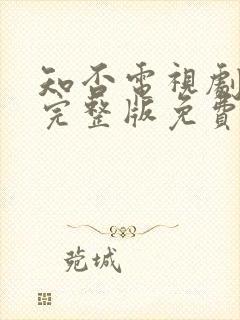 知否電視劇
完整版免費
菀城